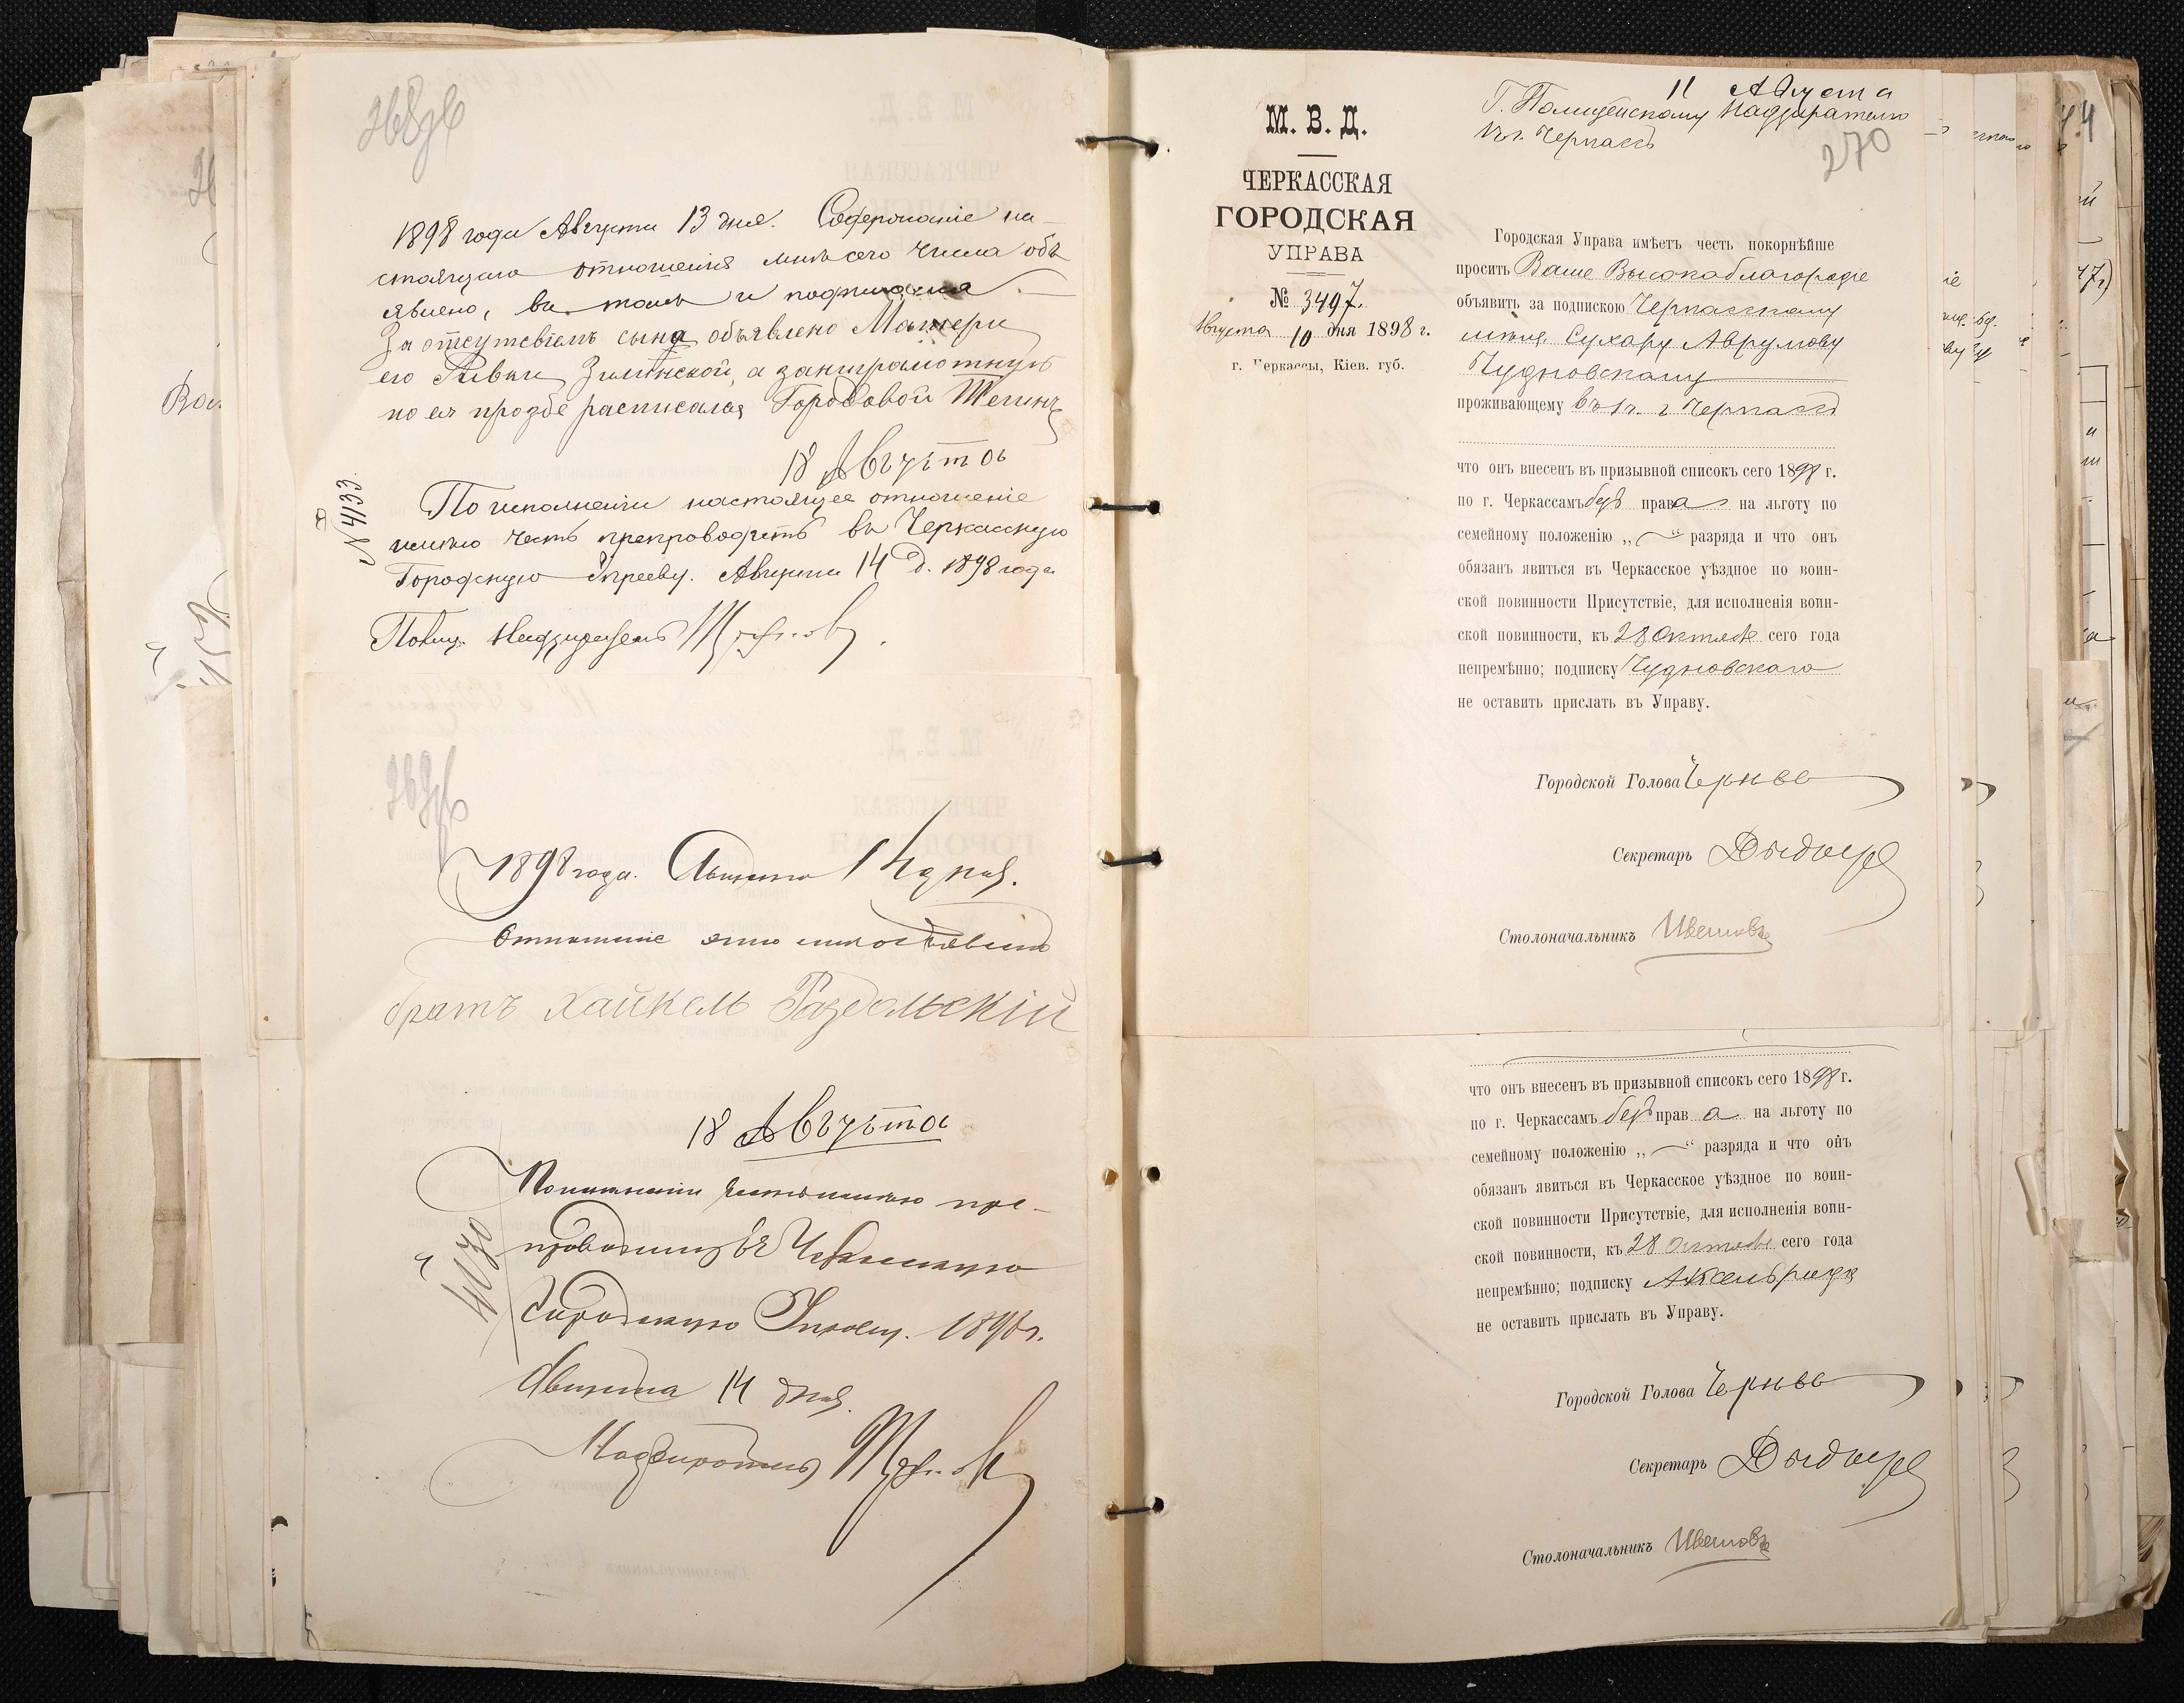 268об
1898 года Августа 13 дня. Содержаніе на-
стоящаго отношенія мнѣ сего числа объ
явлено, въ томъ и подписа
За отсутсвіемъ сына объявлено Матери
его Ривки Зилинской, а занеграмотную
по ея прозбе расписался Городовой
18 Августа
№ 4133
По исполненіи настоящее отношеніе
имѣю честь препроводить въ Черкасскую
Городскую Управу. Августа 14 д. 1898 года
Полиц. Надзиратель
269об
1898 года. Августа 14 дня.
Отношеніе это мнѣ объявлено
братъ Хайкель Раздольскій
18 Августа
По исполненіи честь имѣю пре-
проводить въ Черкасскую
4130
Городскую Управу. 1898 г.
Августа 14 дня.
Надзиратель
М. В. Д.
ЧЕРКАССКАЯ
ГОРОДСКАЯ
УПРАВА
№ 3497.
Августа 10 дня 1898 г.
г. Черкассы, Кіев. губ.
11 Августа
Г. Полицейскому Надзирателю
въ г. Черкассъ
270
Городская Управа имѣетъ честь покорнѣйше
просить Ваше Высокоблагородіе
объявить за подпискою Черкасскому
мѣщ. Сухару Аврумову
Чудновскому
проживающему въ г. Черкассъ
что онъ внесенъ въ призывной списокъ сего 1898 г.
по г. Черкассамъ безъ права на льготу по
семейному положенію „—“ разряда и что онъ
обязанъ явиться въ Черкасское уѣздное по воин-
ской повинности Присутствіе, для исполненія воин-
ской повинности, къ 28 Октября сего года
непремѣнно; подписку Чудновскаго
не оставить прислать въ Управу.
Городской Голова
Секретарь
Столоначальникъ
что онъ внесенъ въ призывной списокъ сего 1898 г.
по г. Черкассамъ безъ права на льготу по
семейному положенію „—“ разряда и что онъ
обязанъ явиться въ Черкасское уѣздное по воин-
ской повинности Присутствіе, для исполненія воин-
ской повинности, къ 28 Октября сего года
непремѣнно; подписку Аксельрода
не оставить прислать въ Управу.
Городской Голова
Секретарь
Столоначальникъ